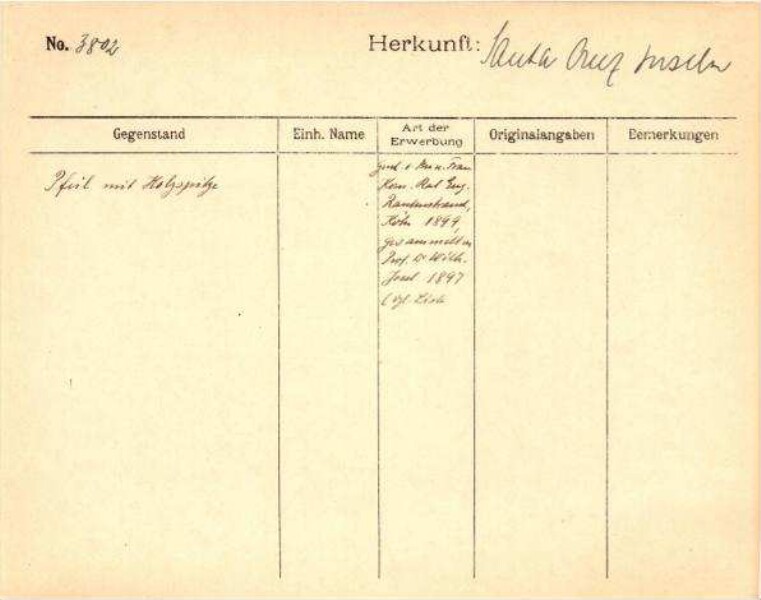 No. 3802
Herkunft: Santa Cruz Inseln
Gegenstand
Einh. Name
Art der Erwerbung
Originalangaben
Bemerkungen
Pfeil mit Holzspitze
Gesch. v. Frau
Kom. Rat Eug.
Rautenstrauch,
Köln 1899,
gesammelt v.
Prof. Dr. Wilh.
Joest 1897
(vgl. Liste